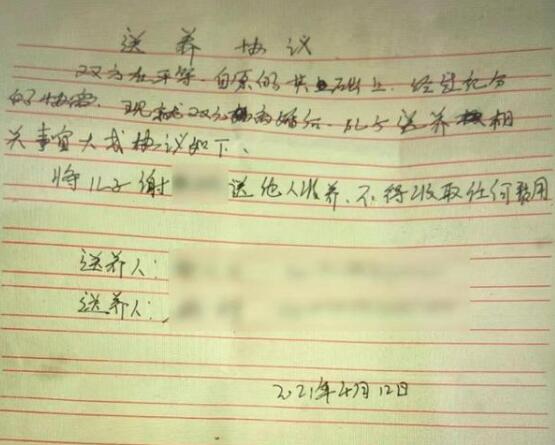 送养协议
双方在平等、自原的其础上、经过充分
的协商、现就双方离婚后、儿子送养相
关事宜大成协议如下、
将儿子谢 送他人收养、不得收取任何费用
送养人:
送养人:
2021年4月12日